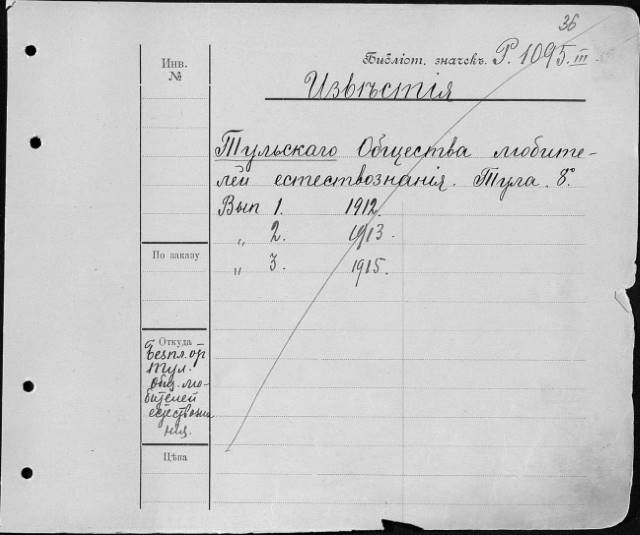 36
Инв.
№
Библіот. значекъ. Р. 1095. III
Извѣстія
Тульскаго Общества любите-
лей естествознанія. Тула. 8°.
Вып 1. 1912.
„ 2. 1913.
„ 3. 1915.
По заказу
Откуда
Безпл. от
Тул.
Общ. лю-
бителей
естествозна
нія.
Цѣна